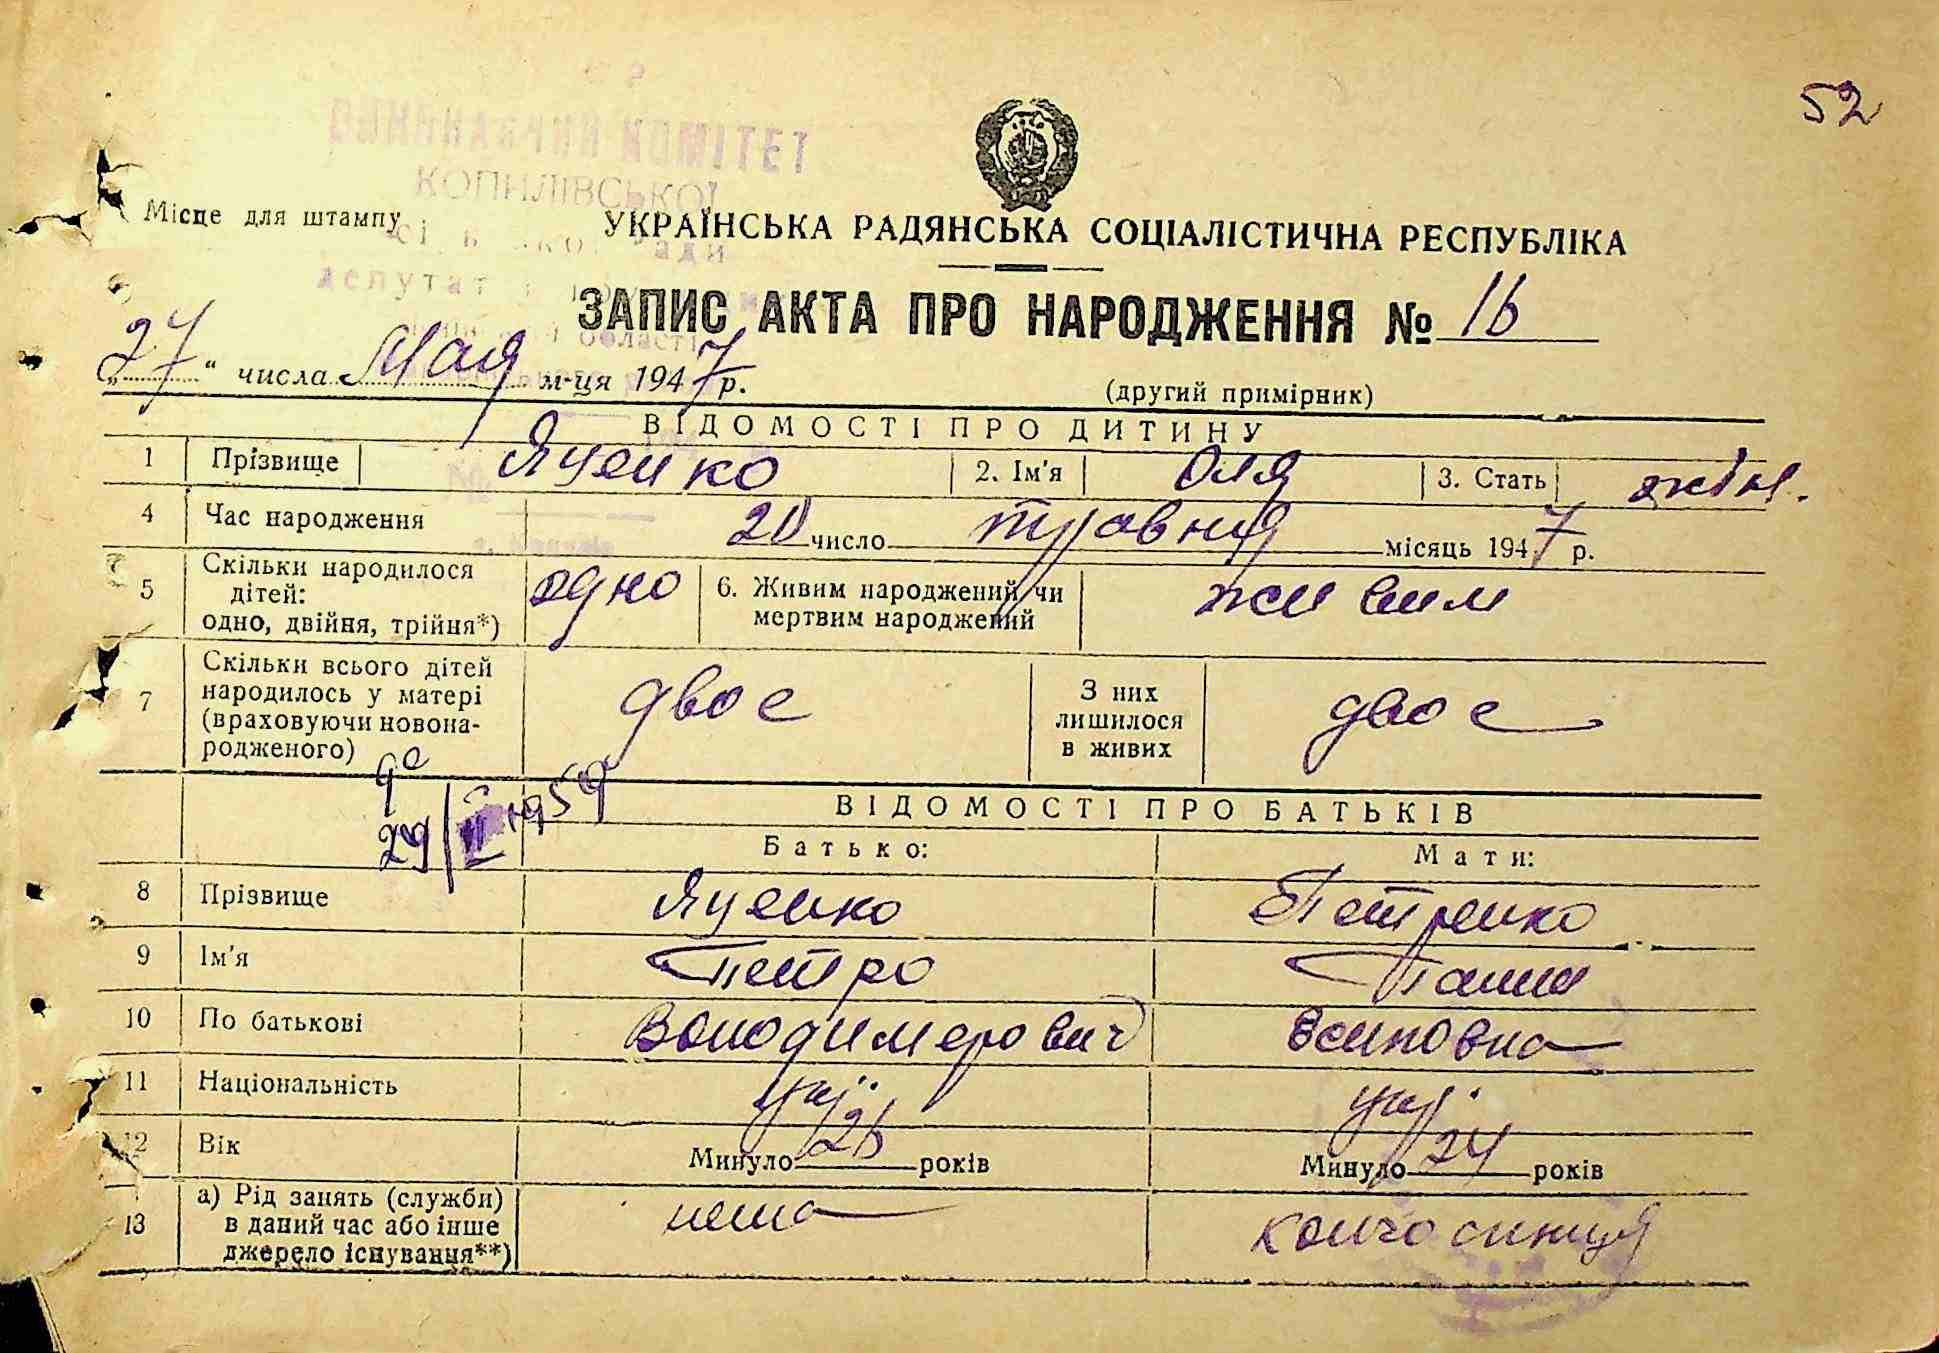 52
ВИКОНАВЧИЙ КОМІТЕТ
КОПИЛІВСЬКОЇ
Місце для штампу
ради
УКРАЇНСЬКА РАДЯНСЬКА СОЦІАЛІСТИЧНА РЕСПУБЛІКА
ЗАПИС АКТА ПРО НАРОДЖЕННЯ № 16
області
„27“ числа Мая м-ця 1947 р.
(другий примірник)
ВІДОМОСТІ ПРО ДИТИНУ
1 Прізвище Яценко 2. Ім'я Оля 3. Стать жін.
4 Час народження 20 число травня місяць 1947 р.
5 Скільки народилося дітей: одно, двійня, трійня*) одно 6. Живим народжений чи мертвим народжений живим
7 Скільки всього дітей народилось у матері (враховуючи новонародженого) двоє З них лишилося в живих двоє
29/II 1959
ВІДОМОСТІ ПРО БАТЬКІВ
Батько: Мати:
8 Прізвище Яценко Петренко
9 Ім'я Петро Ганна
10 По батькові Володимерович Осиповна
11 Національність укр. укр.
12 Вік Минуло 26 років Минуло 24 років
13 а) Рід занять (служби) в даний час або інше джерело існування**) нема колгосниця